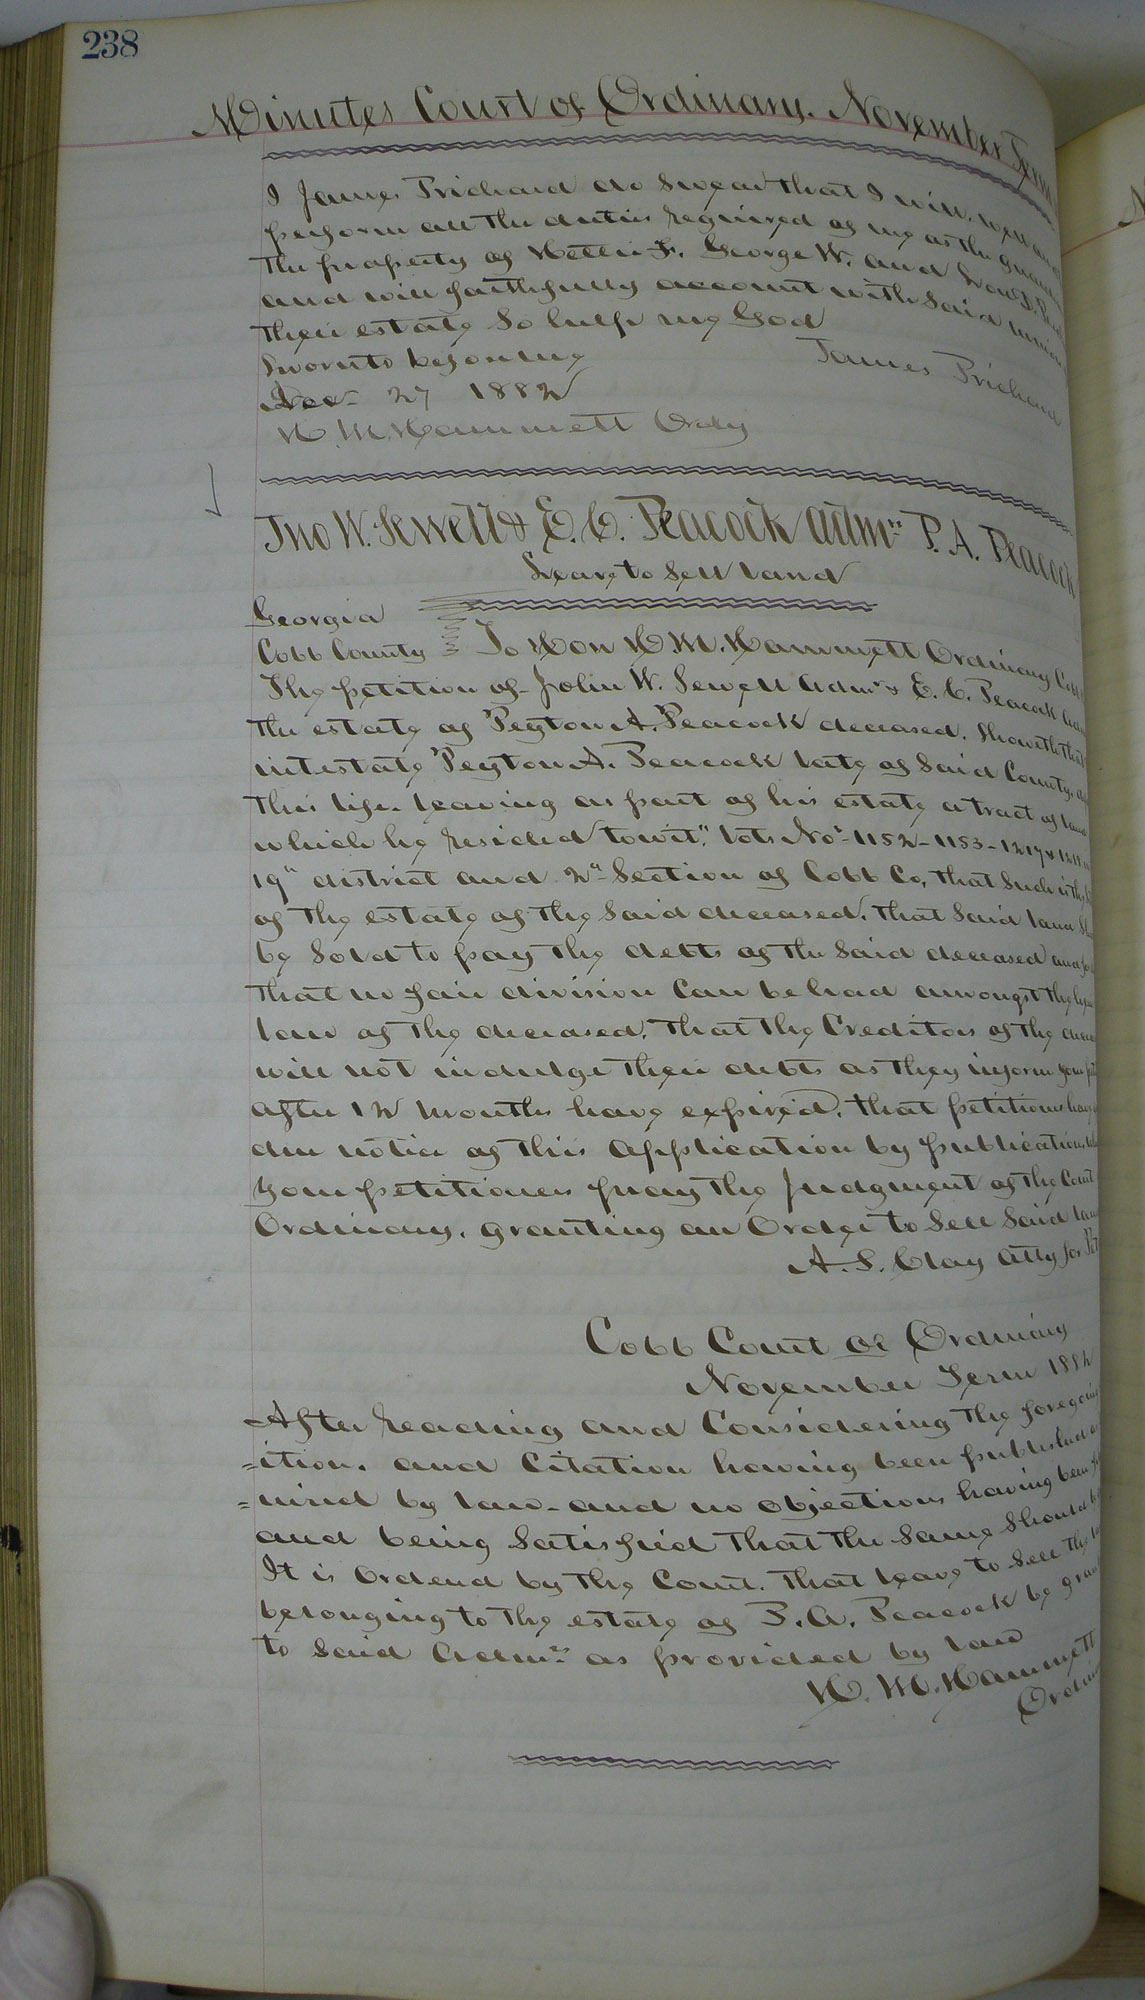 238
Minutes Court of Ordinary. November Term
I James Prichard do swear that I will, well and
perform all the duties required of me as the guardi
the property of Nettie F. George W. and
and will faithfully account with Said minors
their estate So help my God
Sworn to before me James Prichard
Nov- 27 1882
H. M. Hammett Ordy
Jno W. Sewell & E. C. Peacock Admrs P. A. Peacock
Leave to Sell Land
Georgia
Cobb County To Hon H. M. Hammett Ordinary Cobb
The petition of John W. Sewell Admr & E. C. Peacock Adm
the estate of Peyton A. Peacock deceased. Showeth that
intestate Peyton A. Peacock late of Said County, de
this life. leaving as part of his estate a tract of land
which he resided towit," lots Nos 1152 - 1153 - 1217 &
19th district and 2nd Section of Cobb Co, that Such is the
of the estate of the Said deceased. that Said land Sh
be Sold to pay the debts of the Said deceased and
that no fair division can be had amongst the
law of the deceased. that the Creditors of the dece
will not indulge their debts as they inform your
after 12 months have expired. that petitioners have
due notice of this application by publication,
Your petitioners pray the judgment of the Court
Ordinary. granting an Order to Sell Said lan
A. S. Clay Atty for Pet
Cobb Court of Ordinary
November Term 1882
After reading and Considering the foregoing
=ition. and Citation having been published as
=uired by law - and no objections having been
and being Satisfied that the Same Should be
It is Ordered by the Court. that leave to Sell the
belonging to the estate of P. A. Peacock be gran
to Said Admrs as provided by law
H. M. Hammett
Ordin